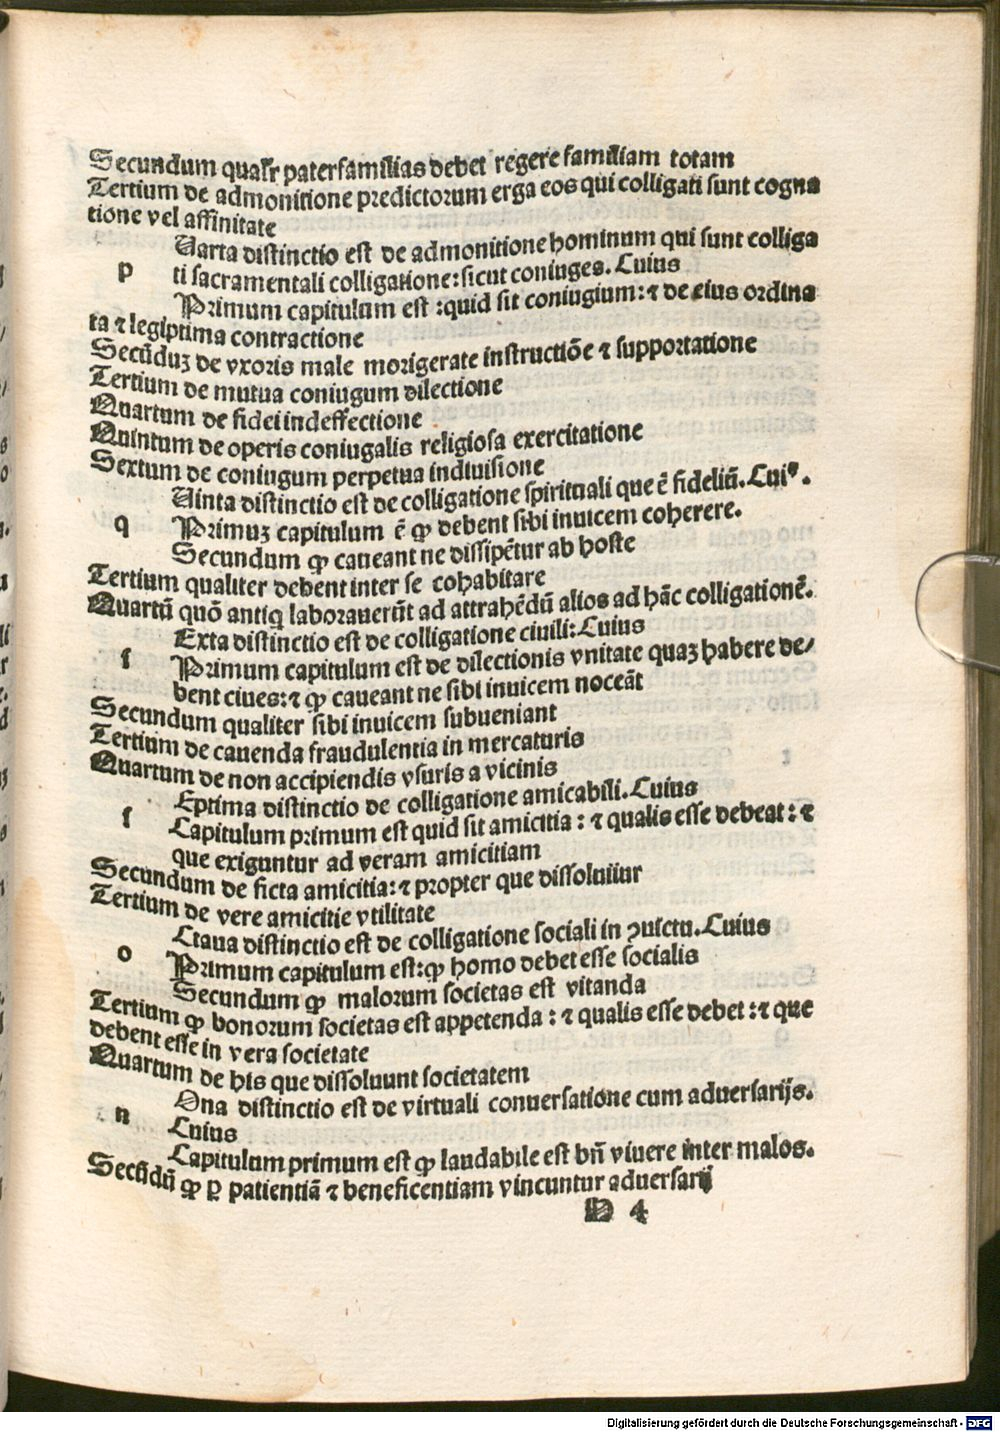 Secundum qualr̃ paterfamilias debet regere familiam totam
Tertium de admonitione predictorum erga eos qui colligati sunt cogna
tione vel affinitate
Uarta distinctio est de admonitione hominum qui sunt colliga
p ti sacramentali colligatione: sicut coniuges. Cuius
Primum capitulum est : quid sit coniugium: ⁊ de eius ordina
ta ⁊ legiptima contractione
Secūduꝫ de vxoris male morigerate instructiōe ⁊ supportatione
Tertium de mutua coniugum dilectione
Quartum de fidei indeffectione
Quintum de operis coniugalis religiosa exercitatione
Sextum de coniugum perpetua indiuisione
Uinta distinctio est de colligatione spirituali que ē fideliū. Cuiꝰ.
q Primuꝫ capitulum ē ꝙ debent sibi inuicem coherere.
Secundum ꝙ caueant ne dissipētur ab hoste
Tertium qualiter debent inter se cohabitare
Quartū quō antiq laborauerūt ad attrahēdū alios ad hāc colligationē.
Exta distinctio est de colligatione ciuili: Cuius
ſ Primum capitulum est de dilectionis vnitate quaꝫ habere de/
bent ciues: ⁊ ꝙ caueant ne sibi inuicem noceāt
Secundum qualiter sibi inuicem subueniant
Tertium de cauenda fraudulentia in mercaturis
Quartum de non accipiendis vsuris a vicinis
Eptima distinctio de colligatione amicabili. Cuius
ſ Capitulum primum est quid sit amicitia : ⁊ qualis esse debeat : ⁊
que exiguntur ad veram amicitiam
Secundum de ficta amicitia: ⁊ propter que dissoluitur
Tertium de vere amicitie vtilitate
Ctaua distinctio est de colligatione sociali in ꝯuictu. Cuius
o Primum capitulum est: ꝙ homo debet esse socialis
Secundum ꝙ malorum societas est vitanda
Tertium ꝙ bonorum societas est appetenda : ⁊ qualis esse debet : ⁊ que
debent esse in vera societate
Quartum de his que dissoluunt societatem
Ona distinctio est de virtuali conuersatione cum aduersarijs.
n Cuius
Capitulum primum est ꝙ laudabile est bn̄ viuere inter malos.
Secūdū ꝙ ꝑ patientiā ⁊ beneficentiam vincuntur aduersarij
D 4
Digitalisierung gefördert durch die Deutsche Forschungsgemeinschaft - DFG